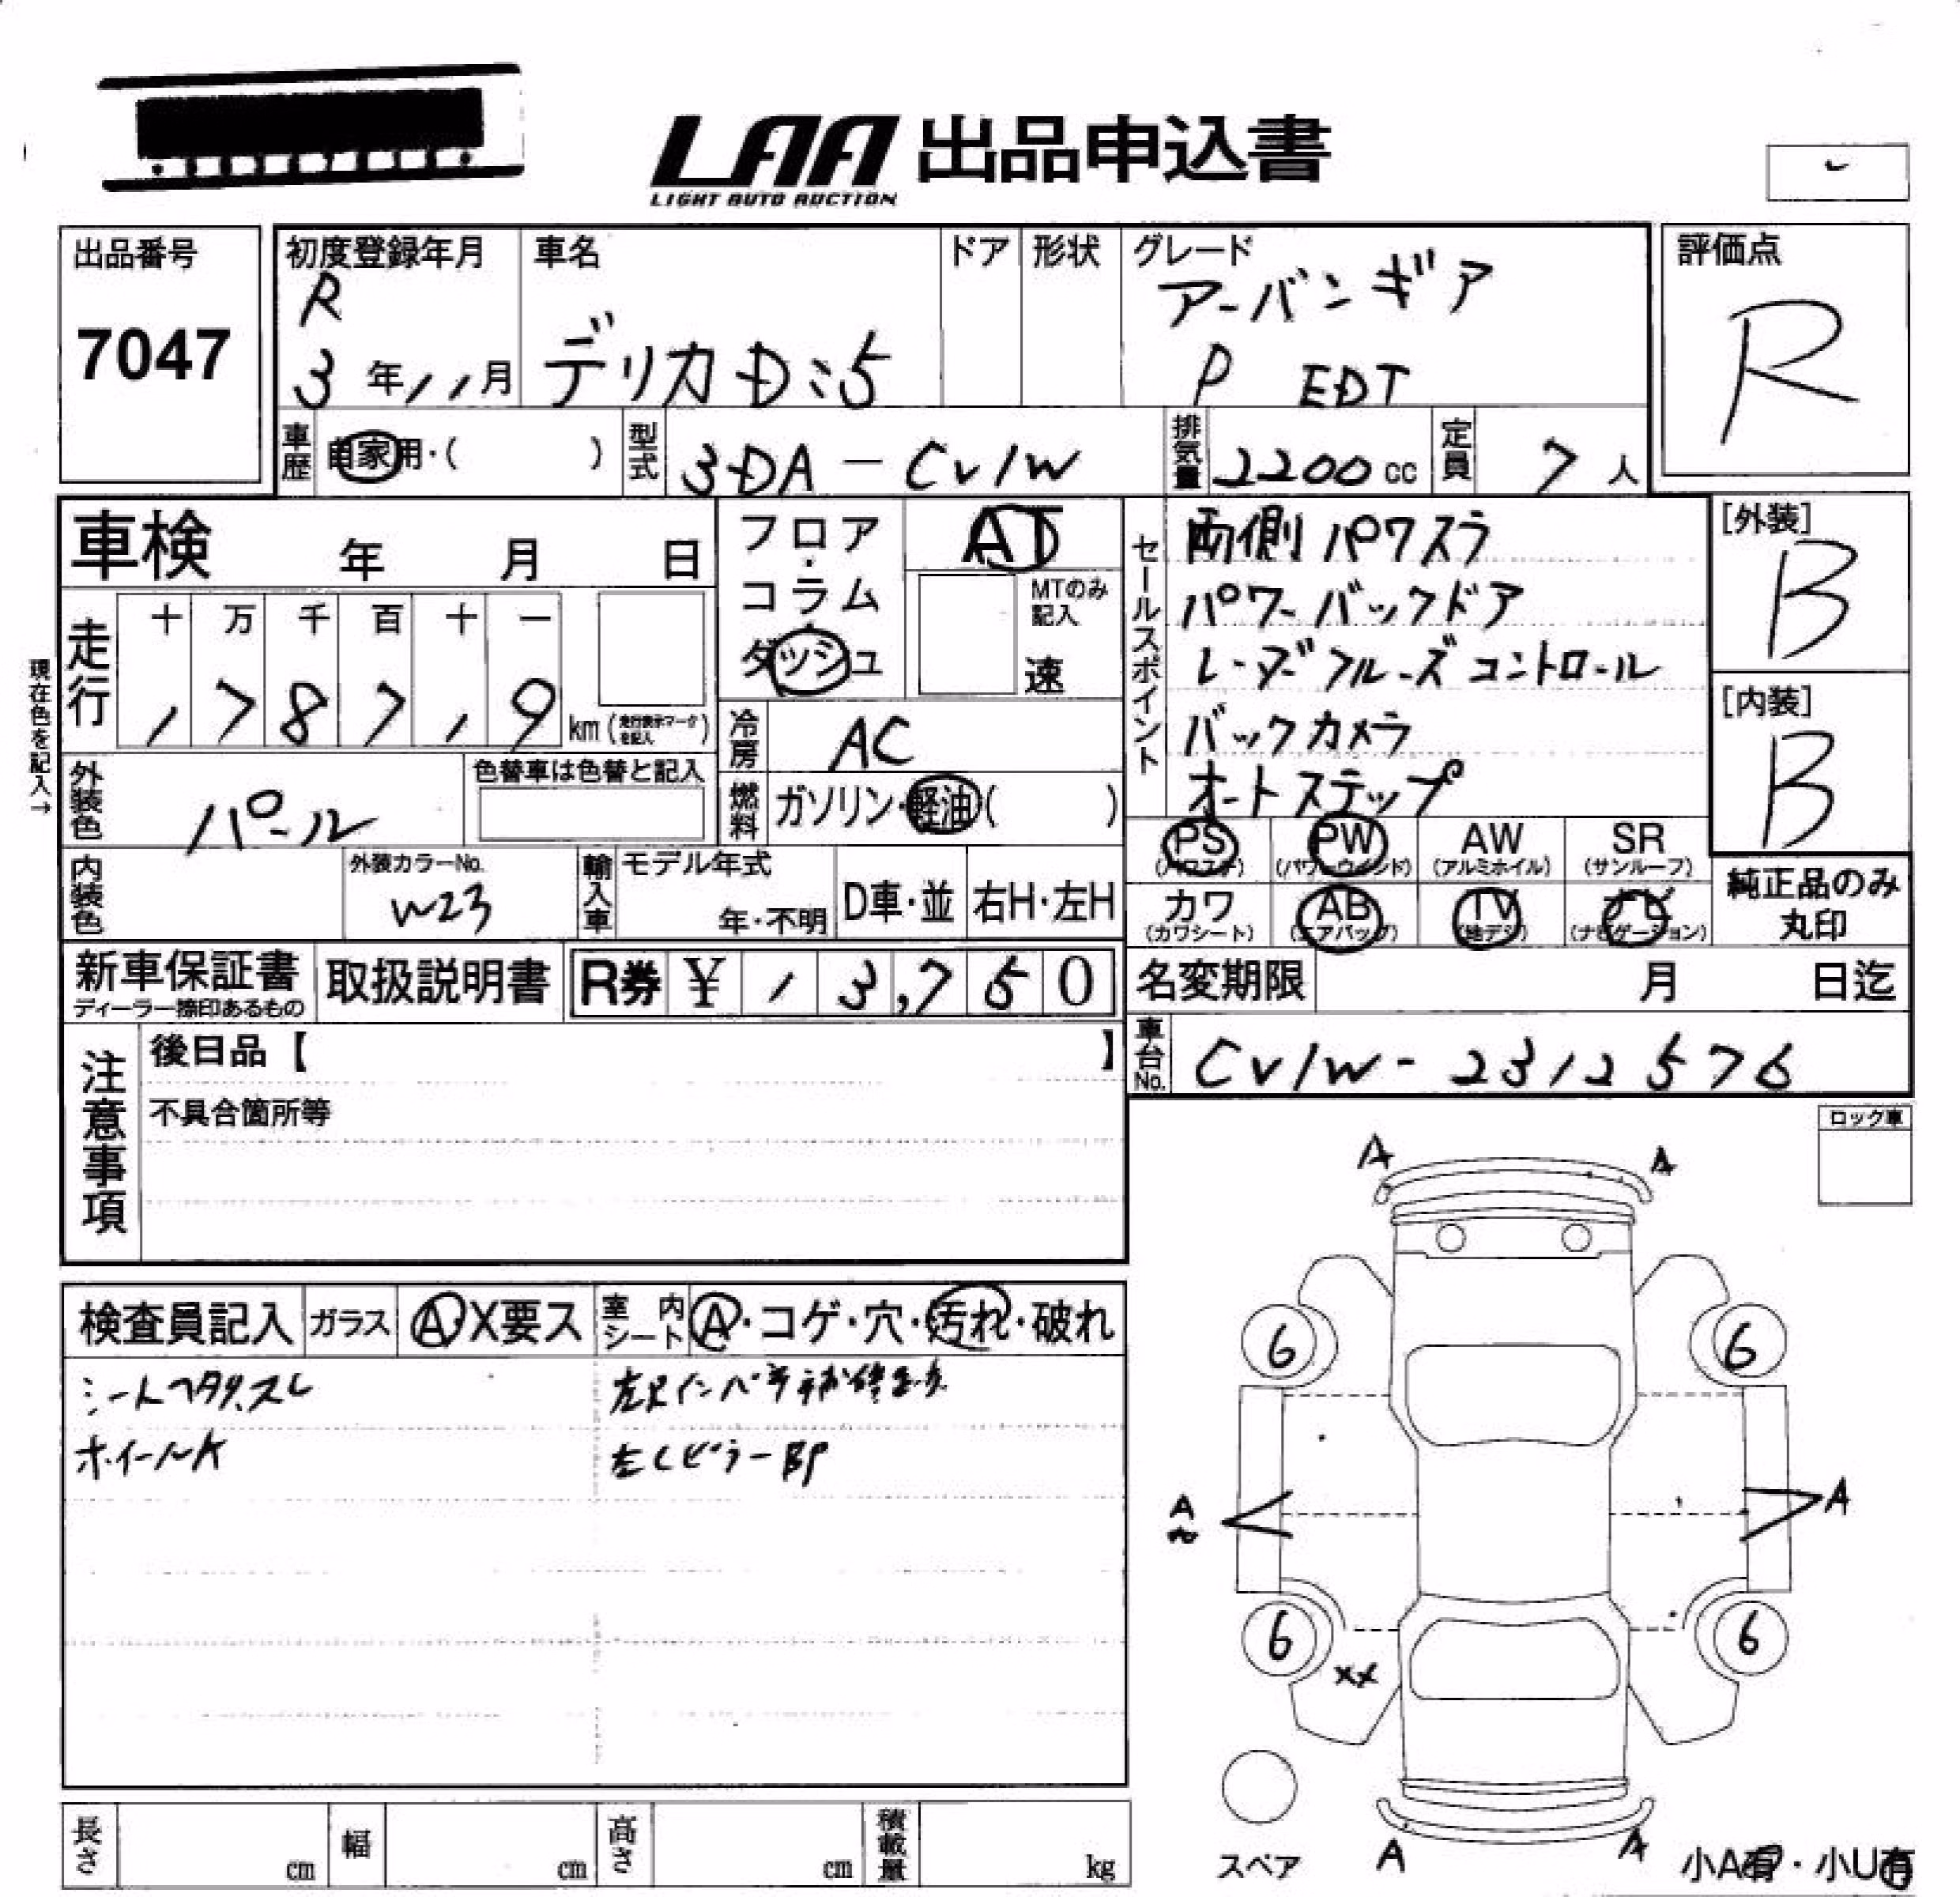 LAA 出品申込書
LIGHT AUTO AUCTION
出品番号
7047
初度登録年月
R
3年11月
車名
デリカD:5
ドア
形状
グレード
アーバンギア
P EDT
評価点
R
車歴
自家用・( )
型式
3DA-CV1W
排気量
2200cc
定員
7人
車検 年 月 日
フロア・
コラム・
ダッシュ
AT
MTのみ
記入
速
セールスポイント
両側パワスラ
パワーバックドア
レーダークルーズコントロール
バックカメラ
オートステップ
[外装]
B
[内装]
B
現在色を記入→
走行
十 万 千 百 十 一
178719 km (走行表示マークを記入)
冷房
AC
外装色
パール
色替車は色替と記入
燃料
ガソリン・軽油( )
PS (パワステ)
PW (パワーウインド)
AW (アルミホイル)
SR (サンルーフ)
カワ (カワシート)
AB (エアバッグ)
TV (地デジ)
ナビ (ナビゲーション)
純正品のみ
丸印
内装色
外装カラーNo.
W23
輸入車
モデル年式
年・不明
D車・並
右H・左H
新車保証書
ディーラー捺印あるもの
取扱説明書
R券 ¥ 13,750
名変期限 月 日迄
車台No.
CV1W-2312576
注意事項
後日品【 】
不具合箇所等
ロック車
検査員記入
ガラス
A・X要ス
室内シート
A・コゲ・穴・汚れ・破れ
シートヘタリ、スレ
ホイールA
左Cピラー部
A A
6 6
A A
6 6
XX
スペア
A A
小A有・小U有
長さ cm
幅 cm
高さ cm
積載量 kg